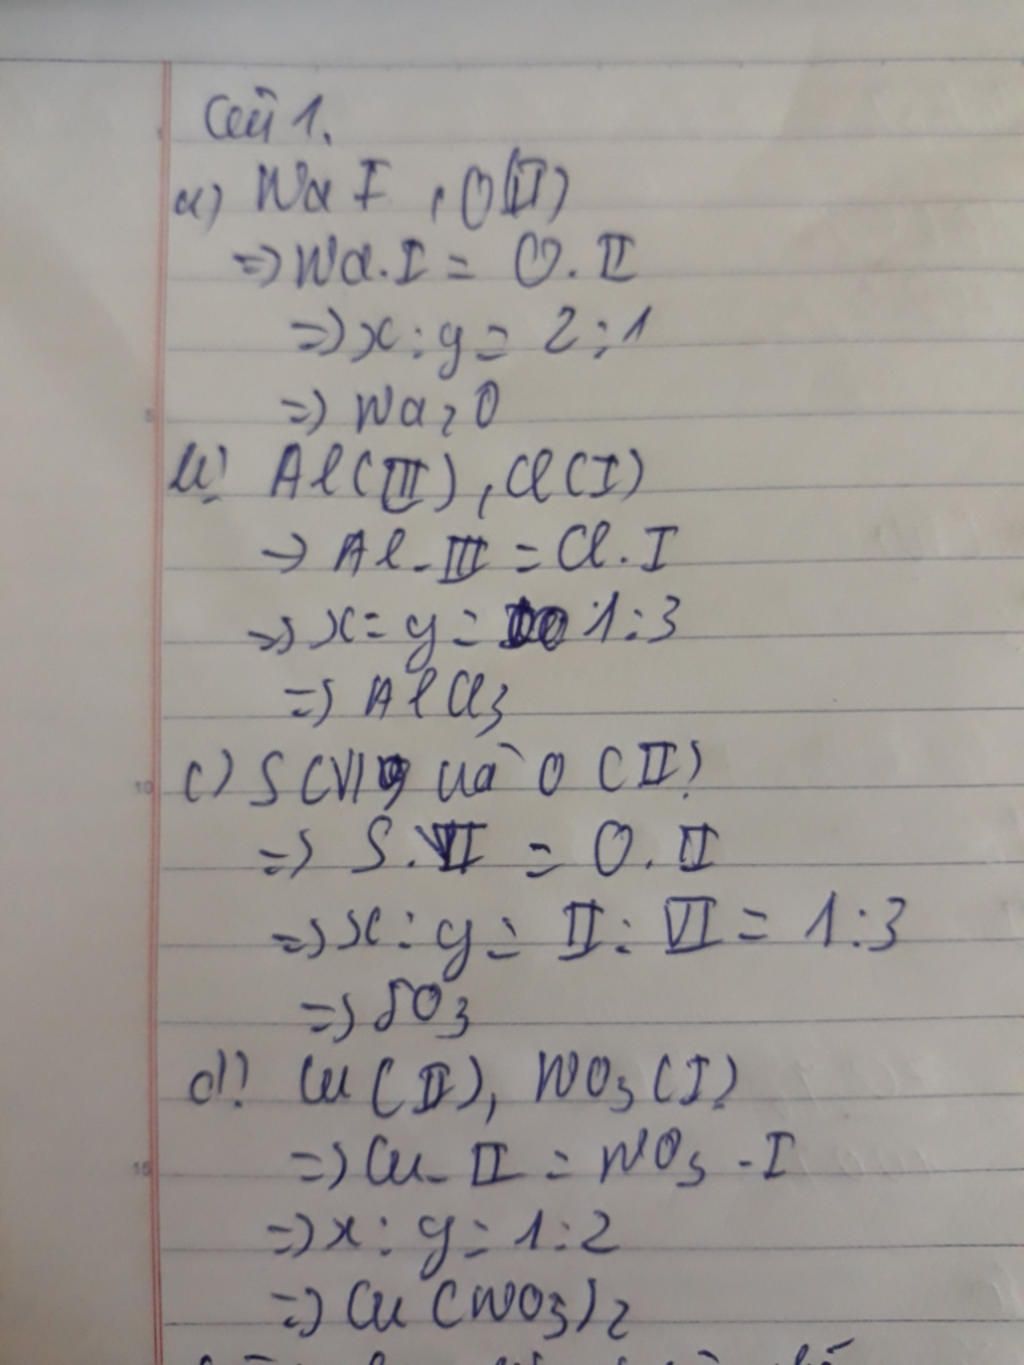 Câu 1.
a) Na I, O(II)
=> Na.I = O.II
=> x : y = 2 : 1
=> Na2O
b) Al(III), Cl(I)
-> Al.III = Cl.I
=> x = y = 1 : 3
=> AlCl3
c) S(VI) và O (II)
=> S.VI = O.II
=> x : y = II : VI = 1 : 3
=> SO3
d) Cu(II), NO3(I)
=> Cu.II = NO3.I
=> x : y = 1 : 2
=> Cu(NO3)2